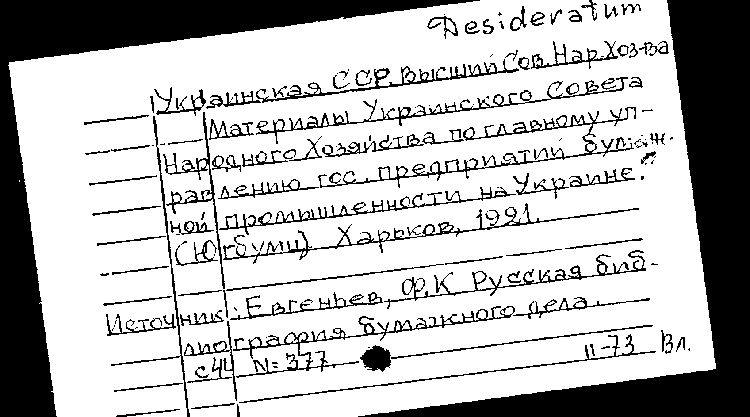 Desideratum
Украинская ССР. Высший Сов. Нар. Хоз-ва
Материалы Украинского Совета
Народного Хозяйства по главному уп-
равлению гос. предприятий бумаж.
ной промышленности на Украине.
(Югбум) Харьков, 1921.
Источник: Евгеньев, Ф.К Русская биб-
лиография бумажного дела.
с44 N=377.
11-73 Вл.